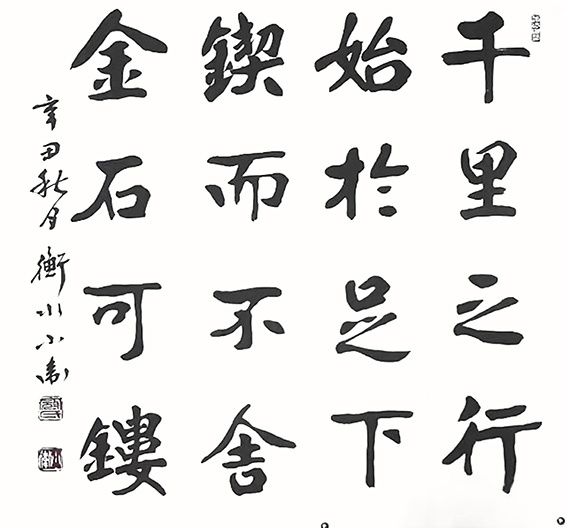 千里之行
始於足下
鍥而不舍
金石可鏤
辛丑秋月衡水小衛